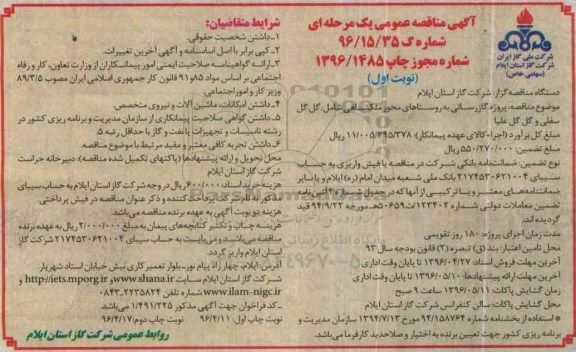 آگهی مناقصه عمومی یک مرحله ای
شماره گ ۹۶/۱۵/۳۵
شماره مجوز چاپ ۱۳۹۶/۱۴۸۵
(نوبت اول)
شرکت ملی گاز ایران
شرکت گاز استان ایلام
(سهامی خاص)
دستگاه مناقصه گزار: شرکت گاز استان ایلام
موضوع مناقصه: پروژه گازرسانی به روستاهای محور ملکشاهی شامل گل گل
سفلی و گل گل علیا
مبلغ کل برآورد (اجرا-کالای عهده پیمانکار): ۱۱/۰۰۵/۴۹۵/۳۷۸ ریال
مبلغ تضمین: ۵۵۰/۲۷۰/۰۰۰ ریال
نوع تضمین: ضمانتنامه بانکی شرکت در مناقصه یا فیش واریزی به حساب
سیبای ۲۱۷۴۵۳۰۶۲۱۰۰۴ بانک ملی شعبه میدان امام (ره) ایلام و یا سایر
ضمانتنامه های معتبر و یا ترکیبی از آنها که در جدول شماره ۴ آئین نامه
تضمین معاملات دولتی شماره ۱۲۳۴۰۲/ت۵۰۶۵۹هـ مورخه ۹۴/۹/۲۲ قید
گردیده اند.
مدت زمان اجرای پروژه: ۱۸۰ روز تقویمی
محل تامین اعتبار: بند (ق) تبصره (۲) قانون بودجه سال ۹۳
آخرین مهلت فروش اسناد: ۱۳۹۶/۰۴/۲۷ تا پایان وقت اداری
آخرین مهلت ارائه پیشنهادها: ۱۳۹۶/۰۵/۱۰ تا پایان وقت اداری
زمان گشایش پاکات: ۱۳۹۶/۰۵/۱۱ ساعت ۹ صبح
محل گشایش پاکات: سالن کنفرانس شرکت گاز استان ایلام
* استفاده از بخشنامه شماره ۹۴/۱۵۸۷۶۴ مورخ ۱۳۹۴/۷/۱۳ سازمان مدیریت و
برنامه ریزی کشور جهت تعیین برنده به اختیار و صلاحدید کارفرما می باشد.
شرایط متقاضیان:
۱-داشتن شخصیت حقوقی.
۲-کپی برابر با اصل اساسنامه و آگهی آخرین تغییرات.
۳-ارائه گواهینامه صلاحیت ایمنی امور پیمانکاران از وزارت تعاون، کار و رفاه
اجتماعی بر اساس مواد ۸۵و۹۱ قانون کار جمهوری اسلامی ایران مصوب ۸۹/۳/۵
وزیر کار و امور اجتماعی.
۴-داشتن امکانات، ماشین آلات و نیروی متخصص.
۵-داشتن گواهی صلاحیت پیمانکاری از سازمان مدیریت و برنامه ریزی کشور در
رشته تاسیسات و تجهیزات یا نفت و گاز با حداقل رتبه ۵.
۶-داشتن تجربه کافی معتبر و مفید مرتبط با موضوع مناقصه.
محل تحویل و ارائه پیشنهادها (پاکتهای تکمیل شده مناقصه): دبیرخانه حراست
شرکت گاز استان ایلام
هزینه خرید اسناد: ۶۰۰/۰۰۰ ریال در وجه شرکت گاز استان ایلام به حساب سیبای
مذکور به نام شرکت پرداخت کننده و ذکر عنوان مناقصه در فیش پرداختی.
هزینه دو نوبت آگهی به عهده برنده مناقصه می باشد.
هزینه چاپ و تکثیر کتابچه های پیمان به مبلغ ۲/۰۰۰/۰۰۰ ریال به عهده برنده
مناقصه می باشد و می بایست به حساب سیبای ۲۱۷۴۵۳۰۶۲۱۰۰۴ شرکت گاز
استان ایلام واریز گردد.
آدرس: ایلام، چهار راه پیام نور-بلوار تعمیر کاری نبش خیابان استاد شهریار
شرکت گاز استان ایلام سایت www.shana.ir و http://iets.mporg.ir و
www.ilam-nigc.ir شماره تلفن دفتر ۲۲۳۵۸۲۴-۰۸۴۳
-کد فراخوان جهت آگهی مذکور ۱/۴۹۱/۲۳۵ می باشد.
نوبت چاپ اول: ۹۶/۴/۱۱ نوبت چاپ دوم: ۹۶/۴/۱۷
روابط عمومی شرکت گاز استان ایلام